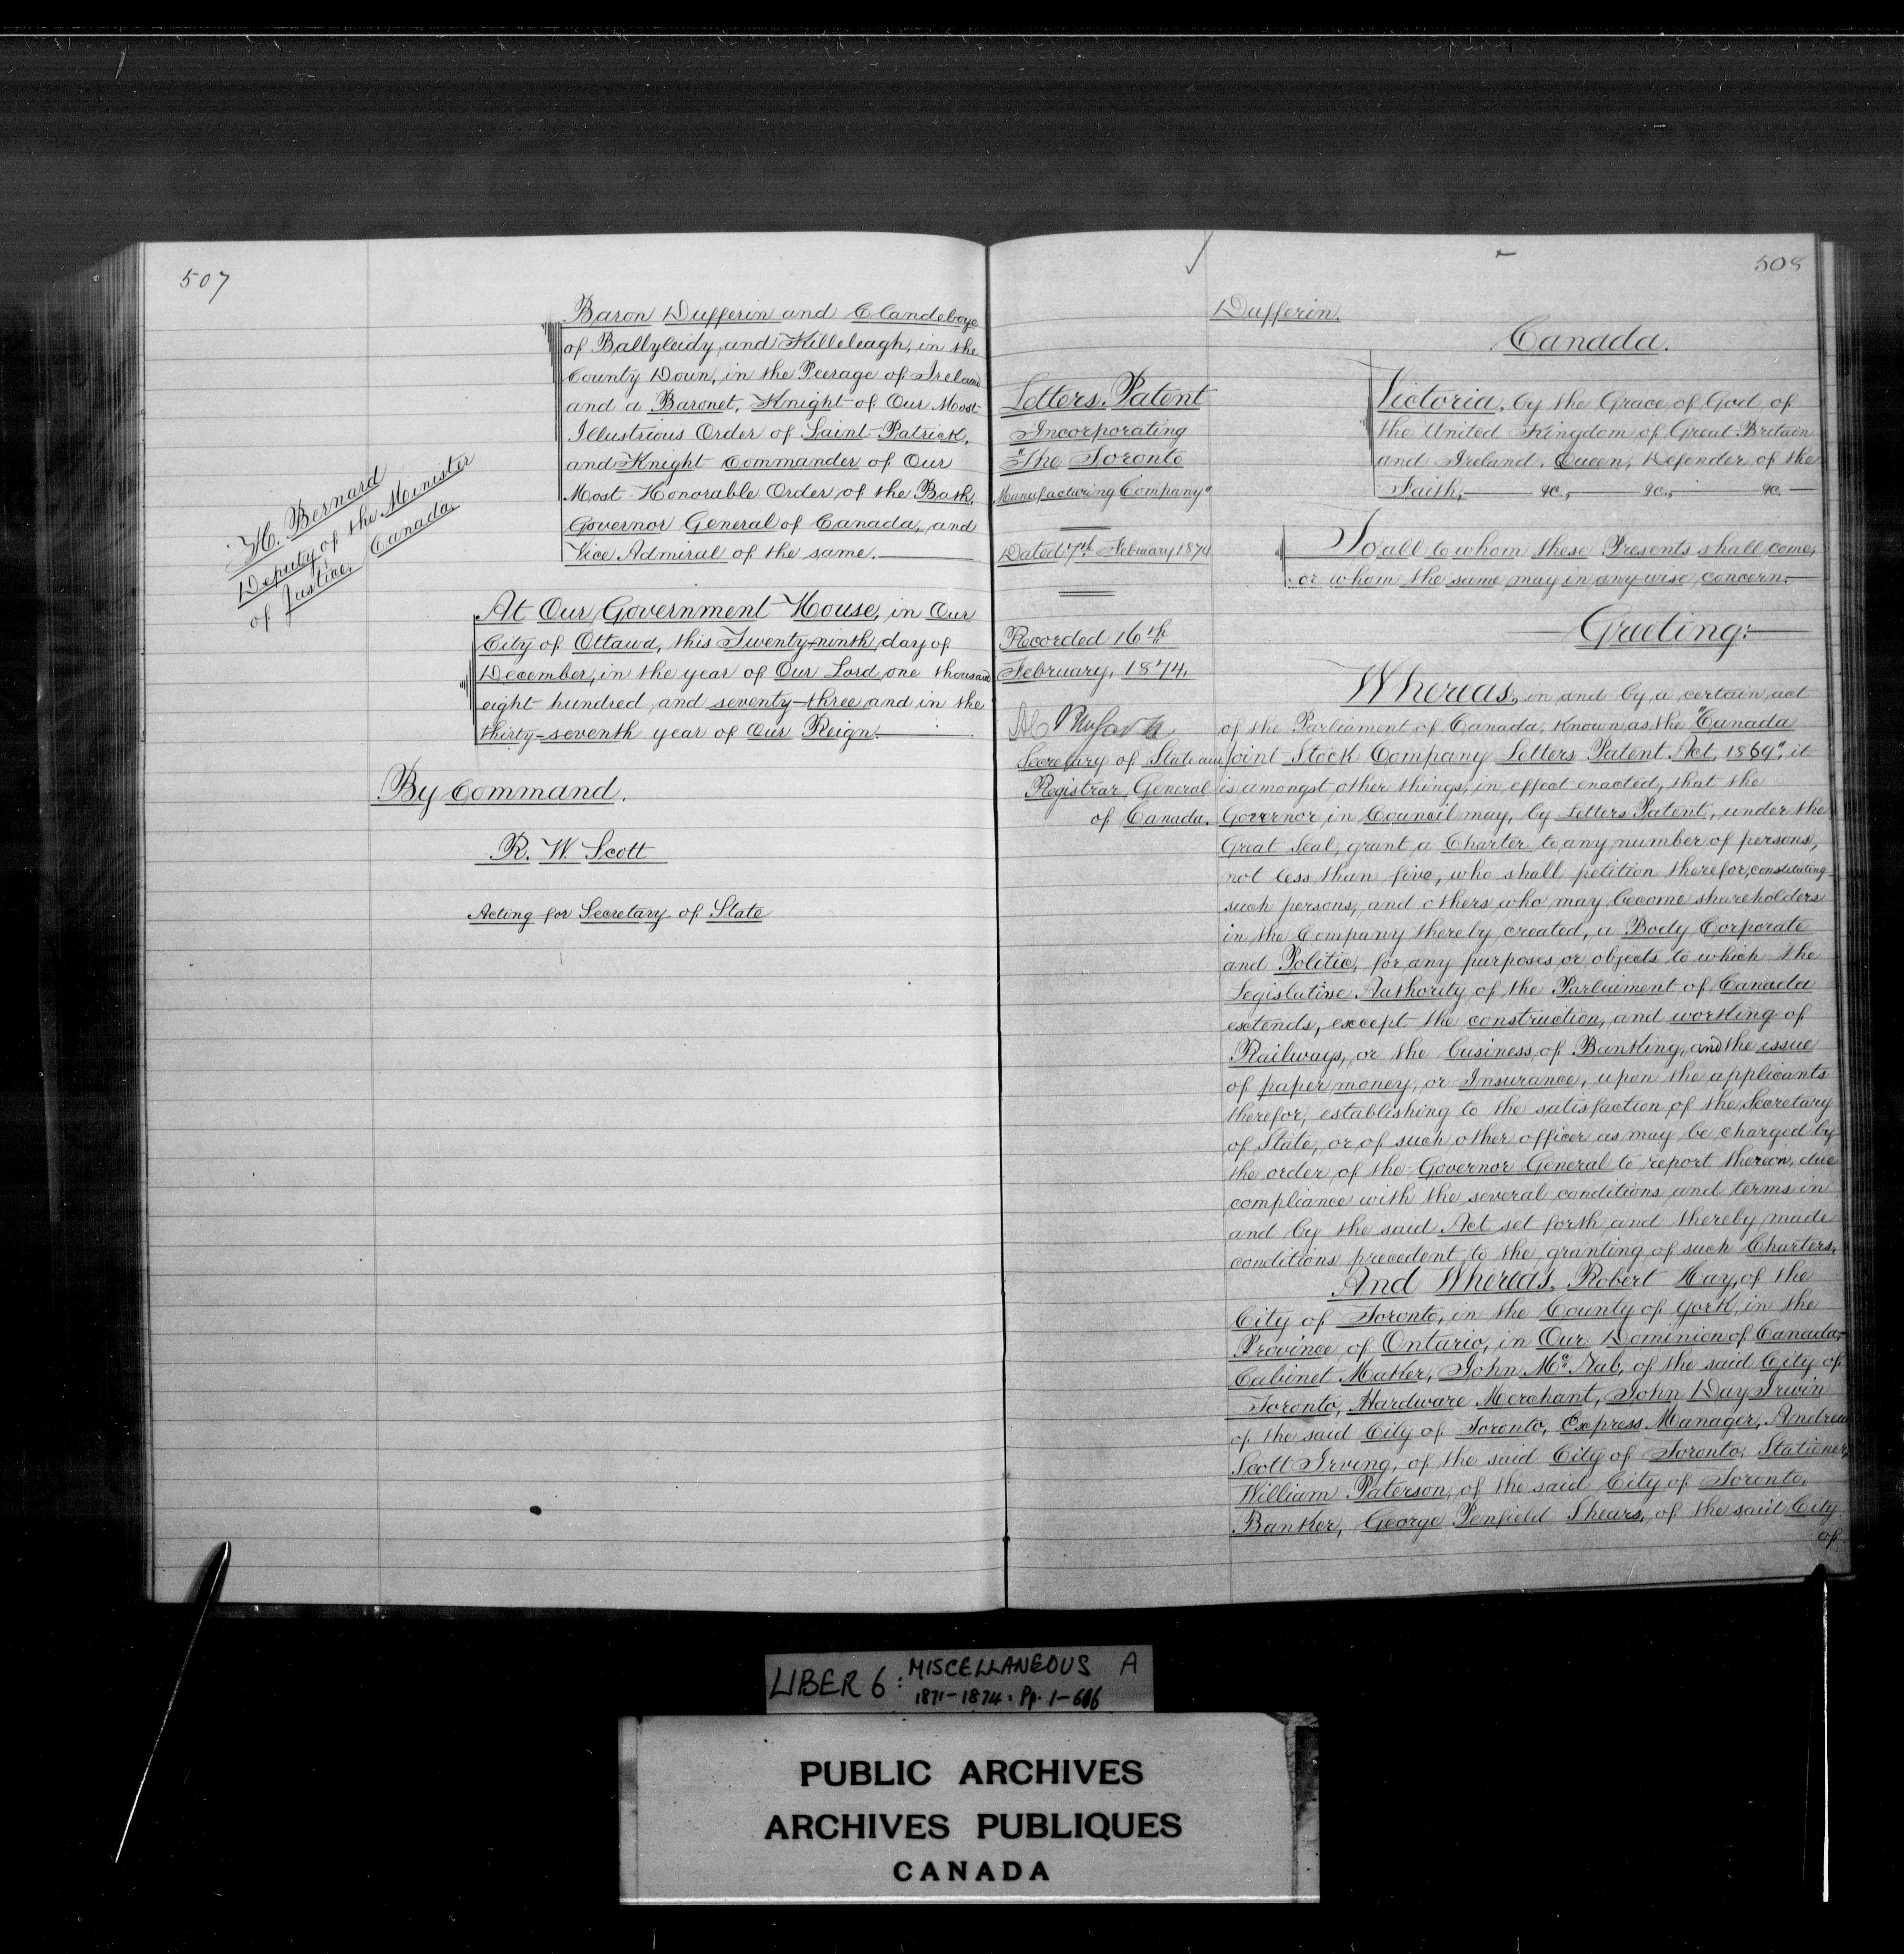 507
Baron Dufferin and Clandeboye
of Ballyleidy and Killeleagh, in the
County Down, in the Peerage of Ireland
and a Baronet, Knight of Our Most
Illustrious Order of Saint Patrick,
and Knight Commander of Our
Most Honorable Order of the Bath,
Governor General of Canada, and
Vice Admiral of the same.
H. Bernard
Deputy of the Minister
of Justice, Canada.
At Our Government House, in Our
City of Ottawa, this Twenty-ninth day of
December, in the year of Our Lord one thousand
eight hundred and seventy-three and in the
thirty-seventh year of Our Reign.
By Command.
R. W. Scott
Acting for Secretary of State
508
Dufferin.
Canada.
Letters Patent
Incorporating
"The Toronto
Manufacturing Company"
Dated 7th February 1874
Recorded 16th
February, 1874.
Secretary of State and
Registrar General
of Canada.
Victoria, by the Grace of God of
the United Kingdom of Great Britain
and Ireland, Queen, Defender of the
Faith, &c., &c., &c.
To all to whom these Presents shall come,
or whom the same may in any wise concern.
Greeting:
Whereas, in and by a certain act
of the Parliament of Canada, known as the "Canada
Joint Stock Company Letters Patent Act, 1869", it
is amongst other things, in effect enacted, that the
Governor in Council may, by Letters Patent, under the
Great Seal, grant a Charter to any number of persons,
not less than five, who shall petition therefor, constituting
such persons, and others who may become shareholders
in the Company thereby created, a Body Corporate
and Politic, for any purposes or objects to which the
Legislative Authority of the Parliament of Canada
extends, except the construction, and working of
Railways, or the business of Banking, and the issue
of paper money, or Insurance, upon the applicants
therefor, establishing to the satisfaction of the Secretary
of State, or of such other officer as may be charged by
the order of the Governor General to report thereon, due
compliance with the several conditions and terms in
and by the said Act set forth and thereby made
conditions precedent to the granting of such Charters.
And Whereas, Robert Hay, of the
City of Toronto, in the County of York, in the
Province of Ontario, in Our Dominion of Canada,
Cabinet Maker, John Mc.Nab, of the said City of
Toronto, Hardware Merchant, John Day Irwin
of the said City of Toronto, Express Manager, Andrew
Scott Irving, of the said City of Toronto, Stationer,
William Paterson, of the said City of Toronto,
Banker, George Penfield Shears, of the said City
of
LIBER 6: MISCELLANEOUS A
1871-1874. Pp. 1-606
PUBLIC ARCHIVES
ARCHIVES PUBLIQUES
CANADA